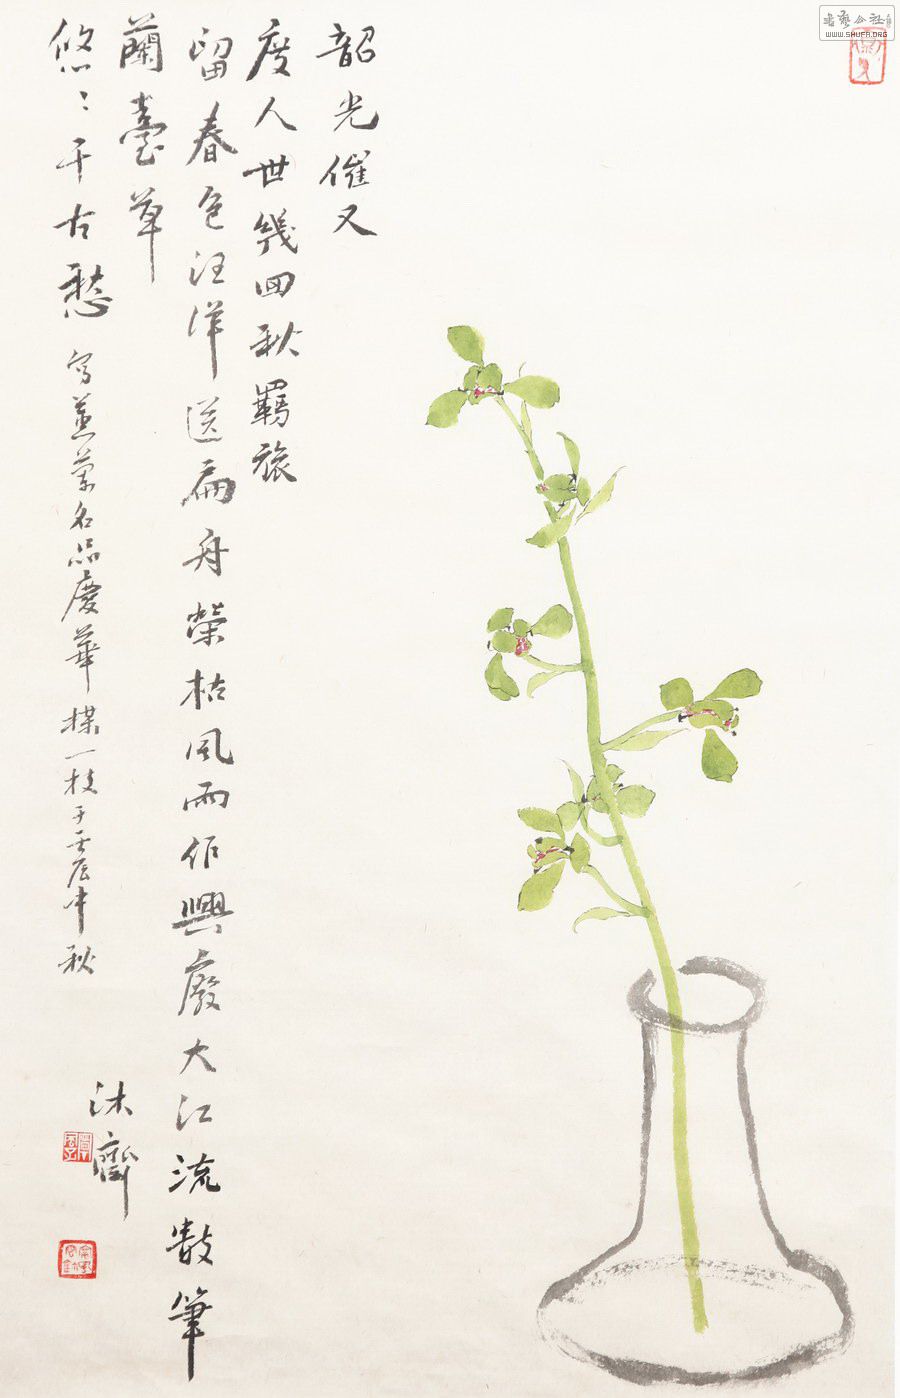 韶光催又
度人世幾回秋羈旅
留春色汪洋送扁舟榮枯風雨作興廢大江流數筆
蘭臺草
悠〻千古愁
寫蕙蘭名品慶華
一枝于壬辰中秋
沐齋
書艺公社
www.SHUFA.ORG